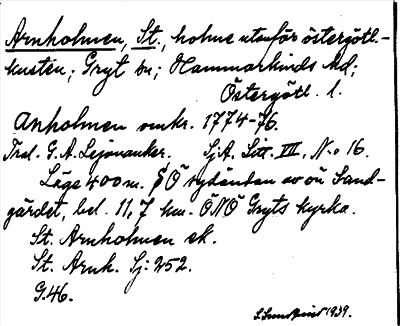 Arnholmen, St., holme utanför östergötl.-
kusten; Gryt sn; Hammarkinds hd;
Östergötl. l.
Anholmen omkr. 1774-76.
Trol. G. A. Lejonanker. SjA. Litt. VII, N:o 16.
Läge 400 m. SÖ sydändan av ön Sand-
gärdet, bel. 11,7 km. ÖNÖ Gryts kyrka.
St. Arnholmen ek.
St. Arnh. Sj: 252.
G.46.
1939.